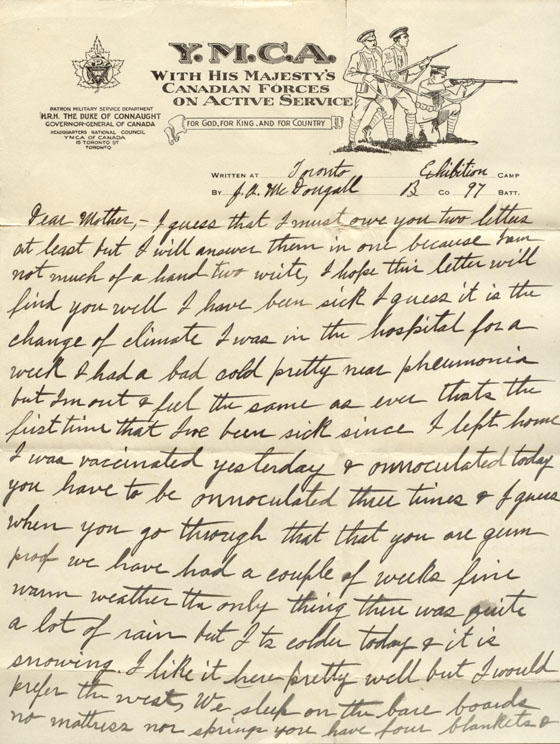 Y.M.C.A.
WITH HIS MAJESTY'S
CANADIAN FORCES
ON ACTIVE SERVICE
FOR GOD, FOR KING, AND FOR COUNTRY
PATRON MILITARY SERVICE DEPARTMENT
H.R.H. THE DUKE OF CONNAUGHT
GOVERNOR-GENERAL OF CANADA
HEADQUARTERS NATIONAL COUNCIL
YMCA OF CANADA
15 TORONTO ST
TORONTO
WRITTEN AT Toronto Exhibition CAMP
BY J.A. McDougall B Co 97 BATT.
Dear Mother,- I guess that I must owe you two letters
at least but I will answer them in one because I am
not much of a hand two write, I hope this letter will
find you well I have been sick I guess it is the
change of climate I was in the hospital for a
week I had a bad cold pretty near pneumonia
but Im out & feel the same as ever thats the
first time that I've been sick since I left home
I was vaccinated yesterday & onnoculated today
you have to be onnoculated three times & I guess
when you go through that that you are gum
proof we have had a couple of weeks fine
warm weather the only thing there was quite
a lot of rain but I ts colder today & it is
snowing. I like it here pretty well but I would
prefer the west, We sleep on the bare boards
no mattress nor springs you have four blankets &